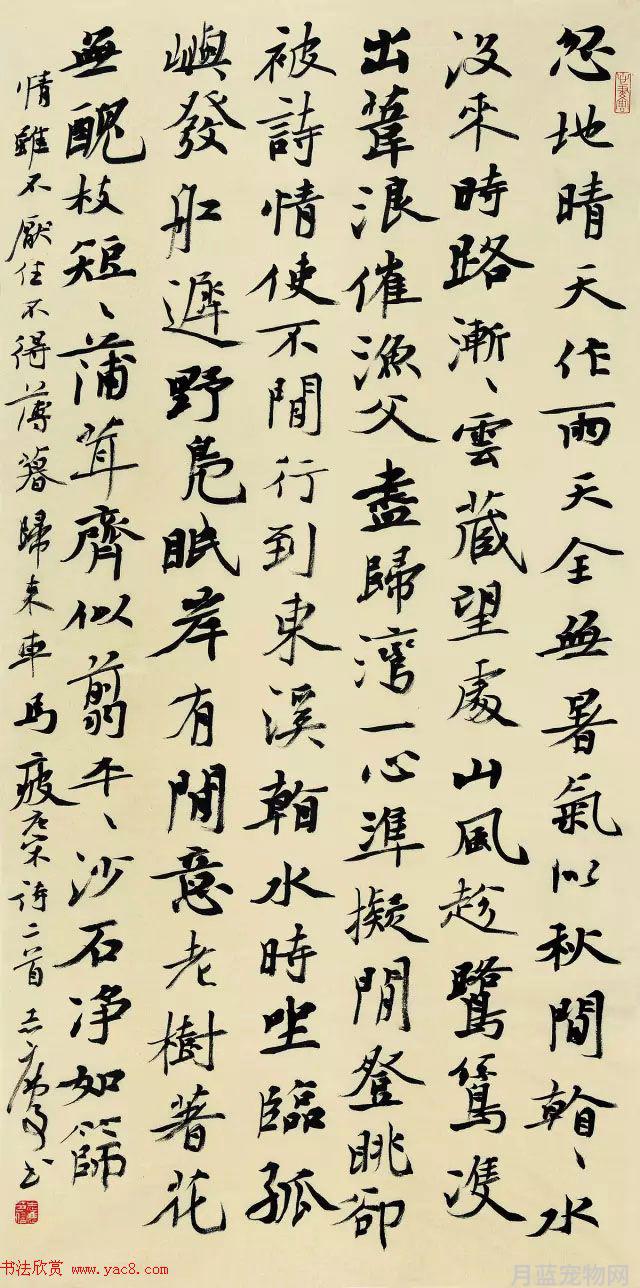 忽地晴天作雨天全無暑氣似秋間看〻水
没來時路漸〻雲藏望處山風趁鷺鷥雙
出葦浪催漁父盡歸灣一心準擬閒登眺卻
被詩情使不閒行到東溪看水時坐臨孤
嶼發船遲野鳧眠岸有閒意老樹著花
無醜枝短〻蒲茸齊似翦平〻沙石净如篩
情雖不厭住不得薄暮歸來車馬疲右宋詩二首
书法欣赏 www.yac8.com
月蓝宠物网